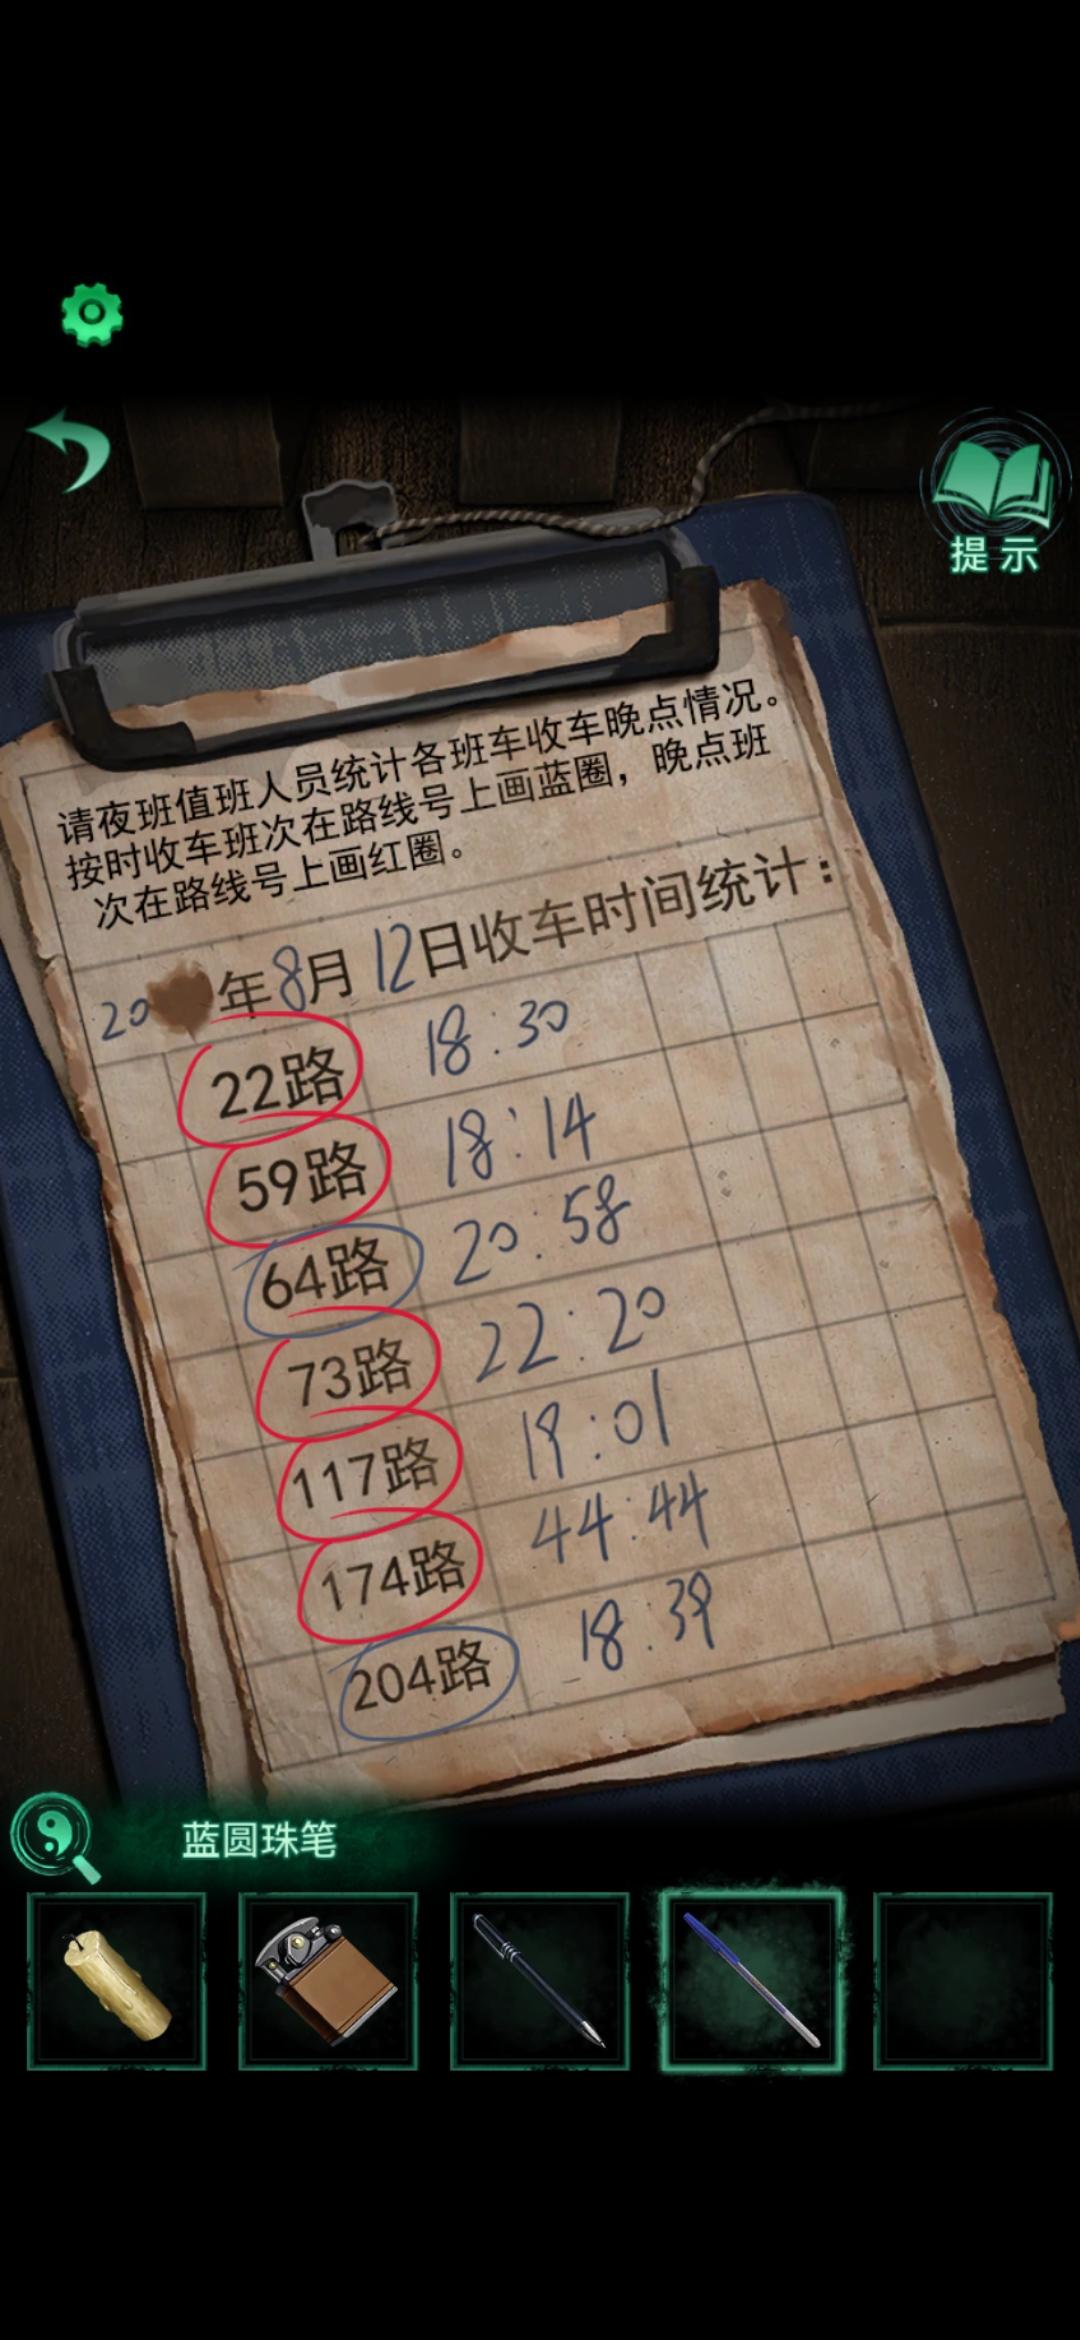 提示
请夜班值班人员统计各班车收车晚点情况。
按时收车班次在路线号上画蓝圈，晚点班
次在路线号上画红圈。
20 年8月12日收车时间统计：
22路 18:30
59路 18:14
64路 20:58
73路 22:20
117路 19:01
174路 44:44
204路 18:39
蓝圆珠笔